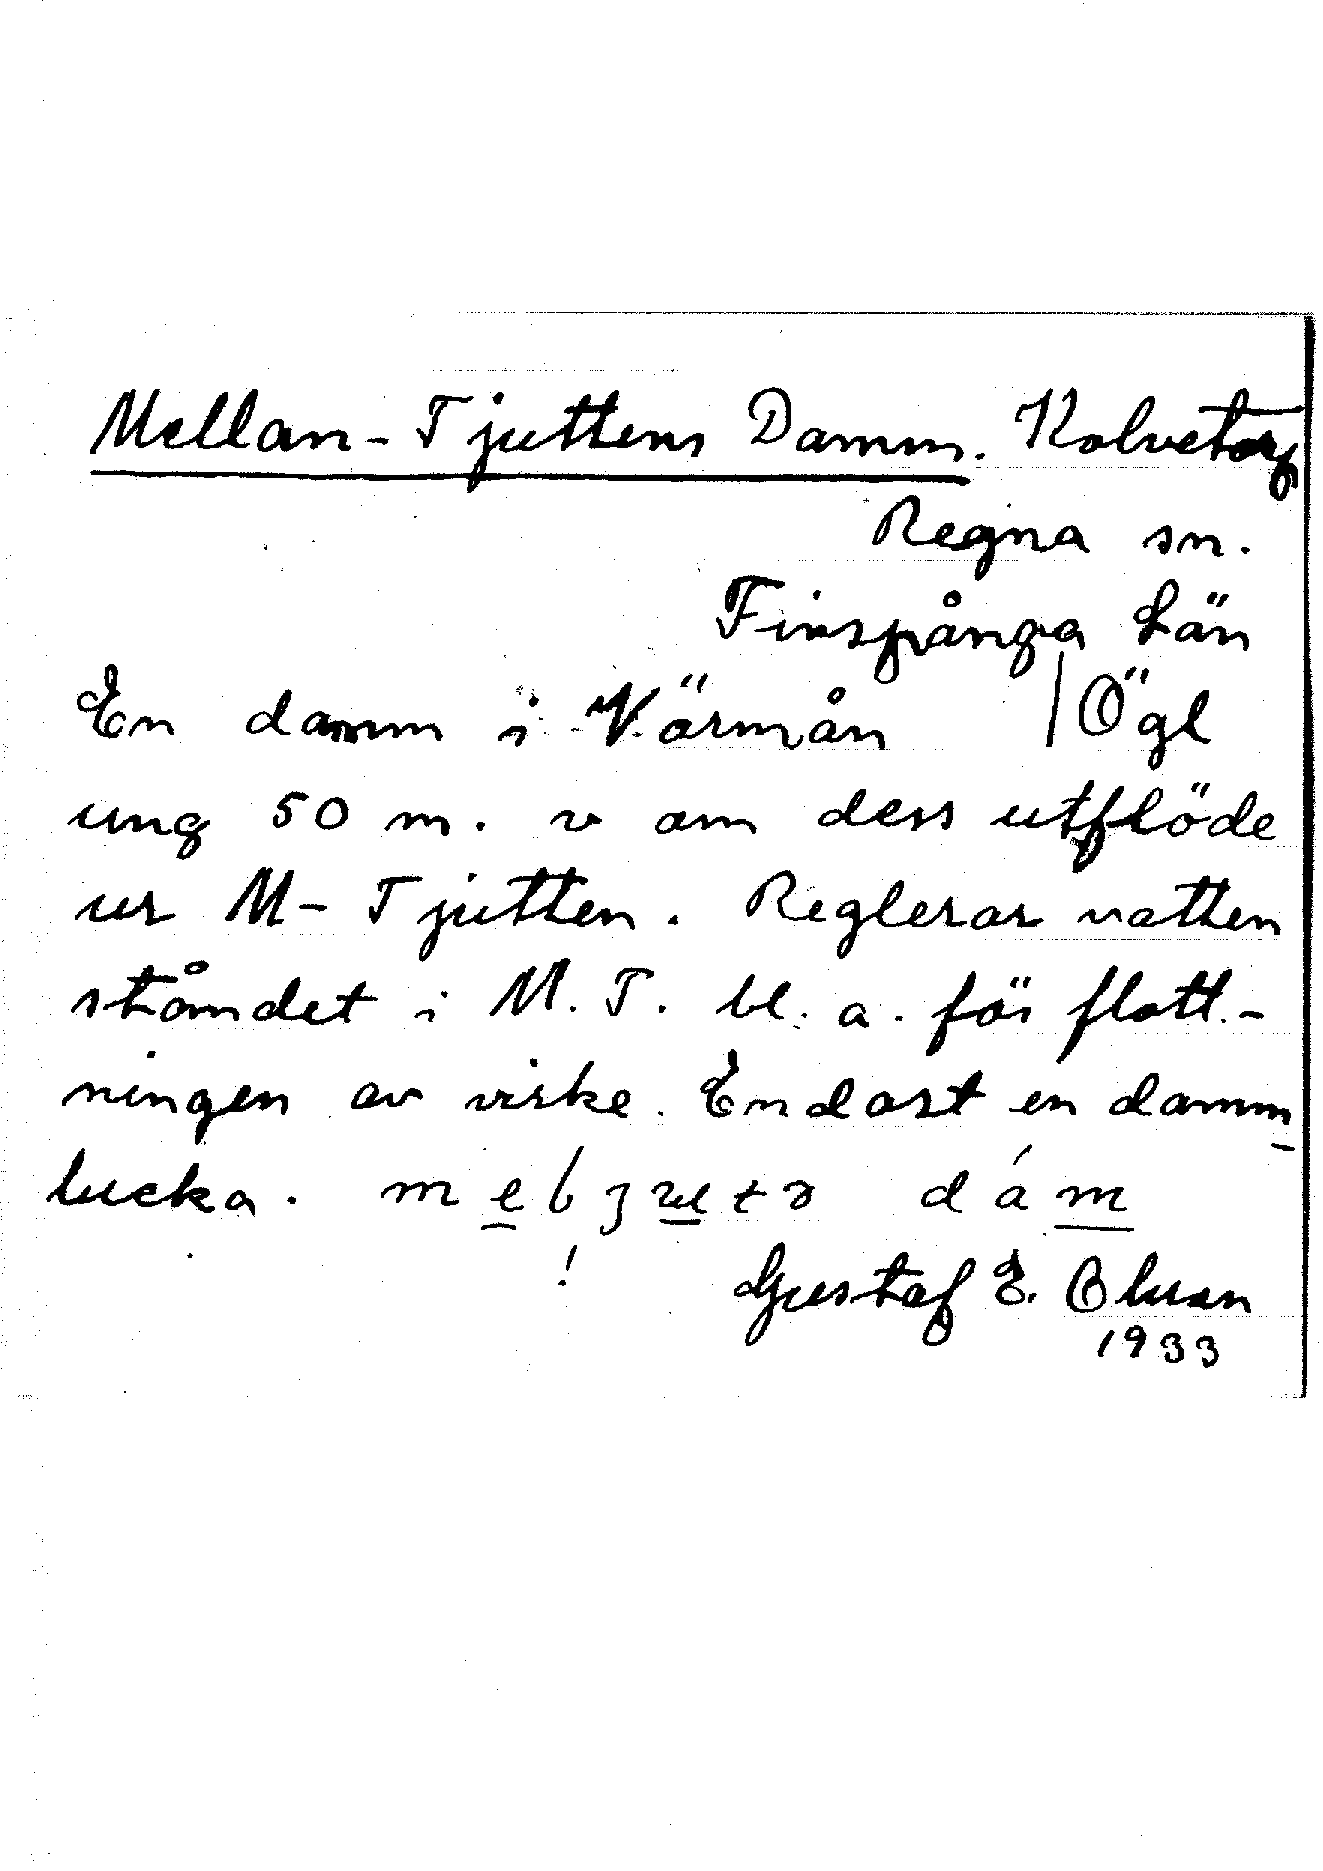 Mellan-Tjuttens Damm. Kolvetorp
Regna sn.
Finspånga län
En damm i Värmån /Ögl
ung 50 m. v om dess utflöde
ur M-Tjutten. Reglerar vatten
ståndet i M. T. bl. a. för flott-
ningen av virke. Endast en damm
lucka. dám
Gustaf E.
1933